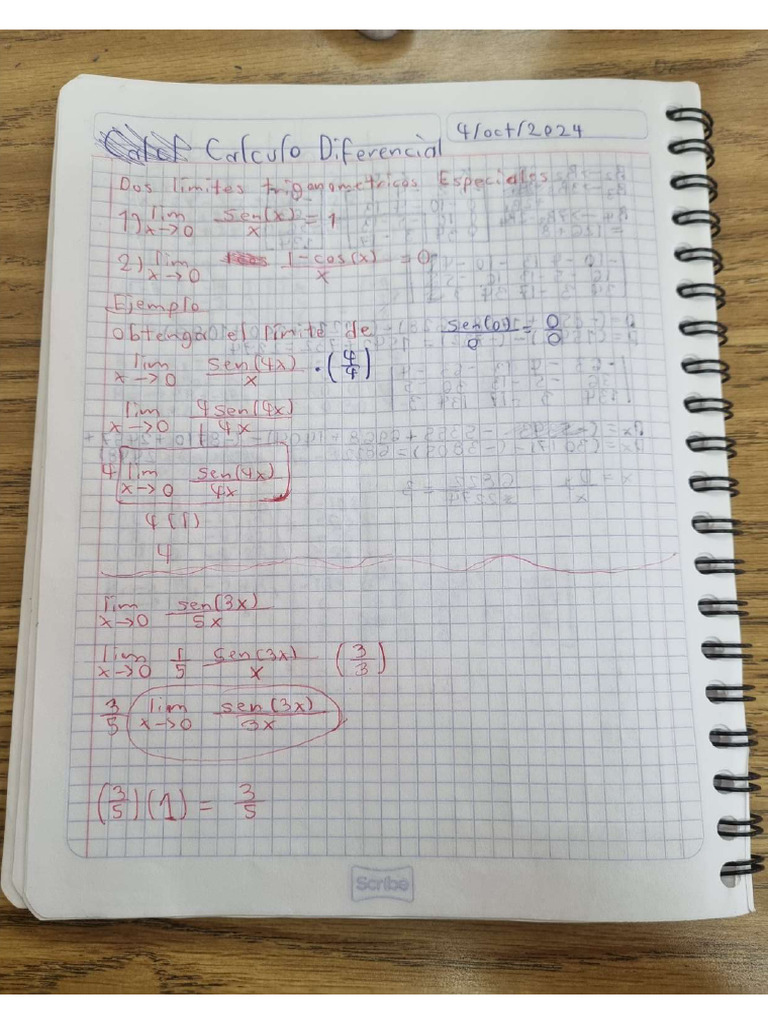 4/oct/2024
Calculo Diferencial
Dos limites trigonometricos Especiales
1) lim x→0 sen(x)/x = 1
2) lim x→0 1-cos(x)/x = 0
Ejemplo
obtenga el limite de sen(0)/0 = 0/0
lim x→0 sen(4x)/x · (4/4)
lim x→0 4sen(4x)/4x
4 lim x→0 sen(4x)/4x
4(1)
4
lim x→0 sen(3x)/5x
lim x→0 1/5 sen(3x)/x (3/3)
3/5 lim x→0 sen(3x)/3x
(3/5)(1) = 3/5
Scribe